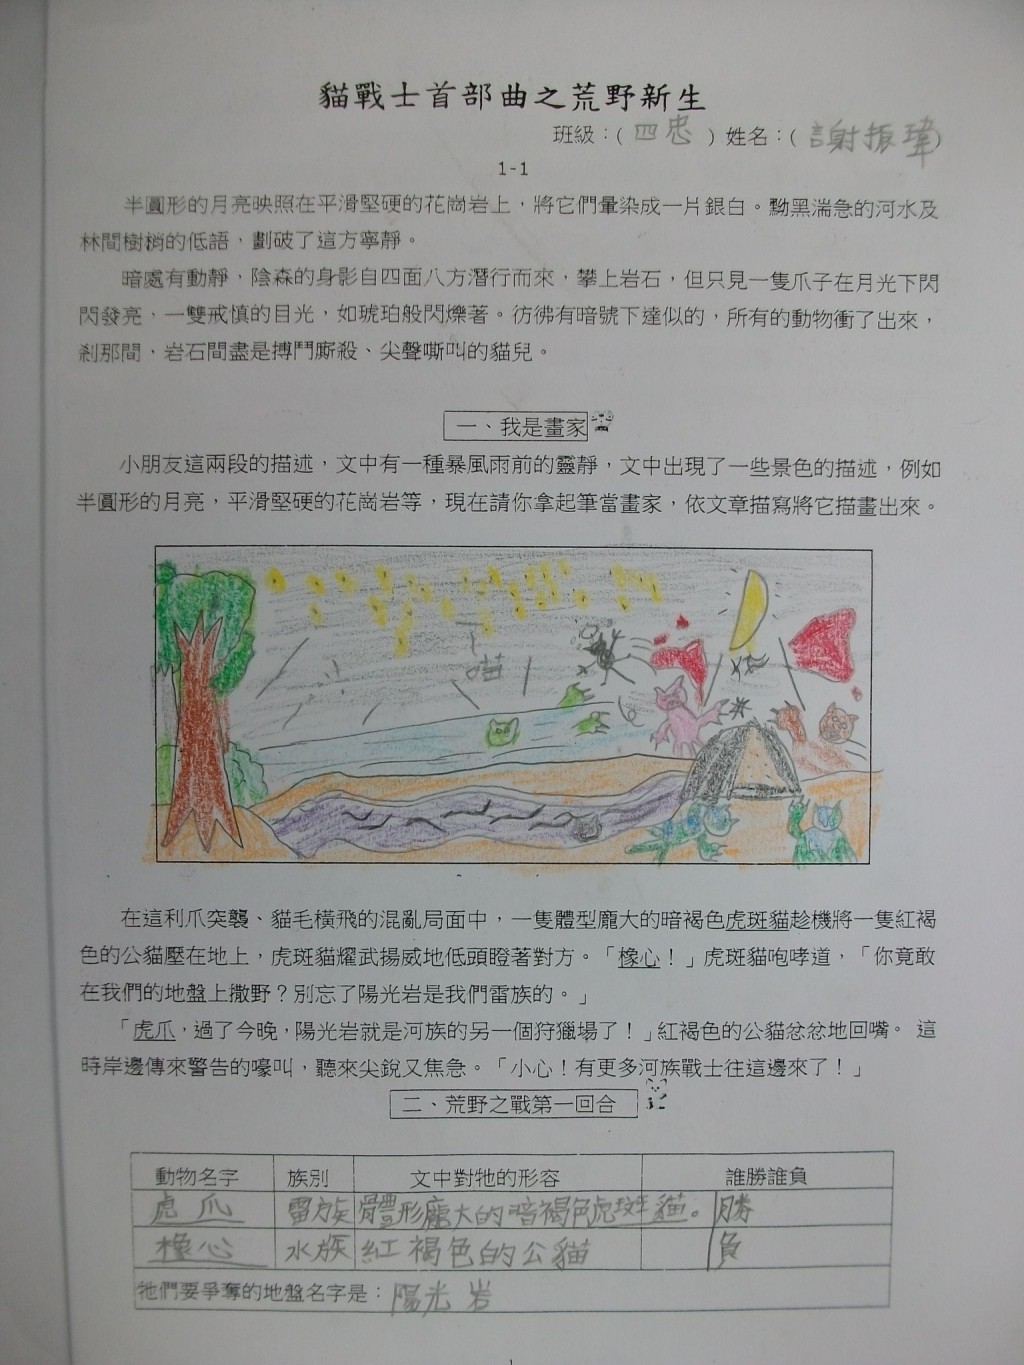 貓戰士首部曲之荒野新生
班級：( 四忠 ) 姓名：( 謝振瑋)
1-1
半圓形的月亮映照在平滑堅硬的花崗岩上，將它們暈染成一片銀白。黝黑湍急的河水及
林間樹梢的低語，劃破了這方寧靜。
暗處有動靜，陰森的身影自四面八方潛行而來，攀上岩石，但只見一隻爪子在月光下閃
閃發亮，一雙戒慎的目光，如琥珀般閃爍著。彷彿有暗號下達似的，所有的動物衝了出來，
剎那間，岩石間盡是搏鬥廝殺、尖聲嘶叫的貓兒。
一、我是畫家
小朋友這兩段的描述，文中有一種暴風雨前的靈靜，文中出現了一些景色的描述，例如
半圓形的月亮，平滑堅硬的花崗岩等，現在請你拿起筆當畫家，依文章描寫將它描畫出來。
喵
在這利爪突襲、貓毛橫飛的混亂局面中，一隻體型龐大的暗褐色虎斑貓趁機將一隻紅褐
色的公貓壓在地上，虎斑貓耀武揚威地低頭瞪著對方。「橡心！」虎斑貓咆哮道，「你竟敢
在我們的地盤上撒野？別忘了陽光岩是我們雷族的。」
「虎爪，過了今晚，陽光岩就是河族的另一個狩獵場了！」紅褐色的公貓忿忿地回嘴。 這
時岸邊傳來警告的嚎叫，聽來尖銳又焦急。「小心！有更多河族戰士往這邊來了！」
二、荒野之戰第一回合
動物名字 族別 文中對牠的形容 誰勝誰負
虎爪 雷族 體形龐大的暗褐色虎斑貓。 勝
橡心 水族 紅褐色的公貓 負
牠們要爭奪的地盤名字是：陽光岩
1